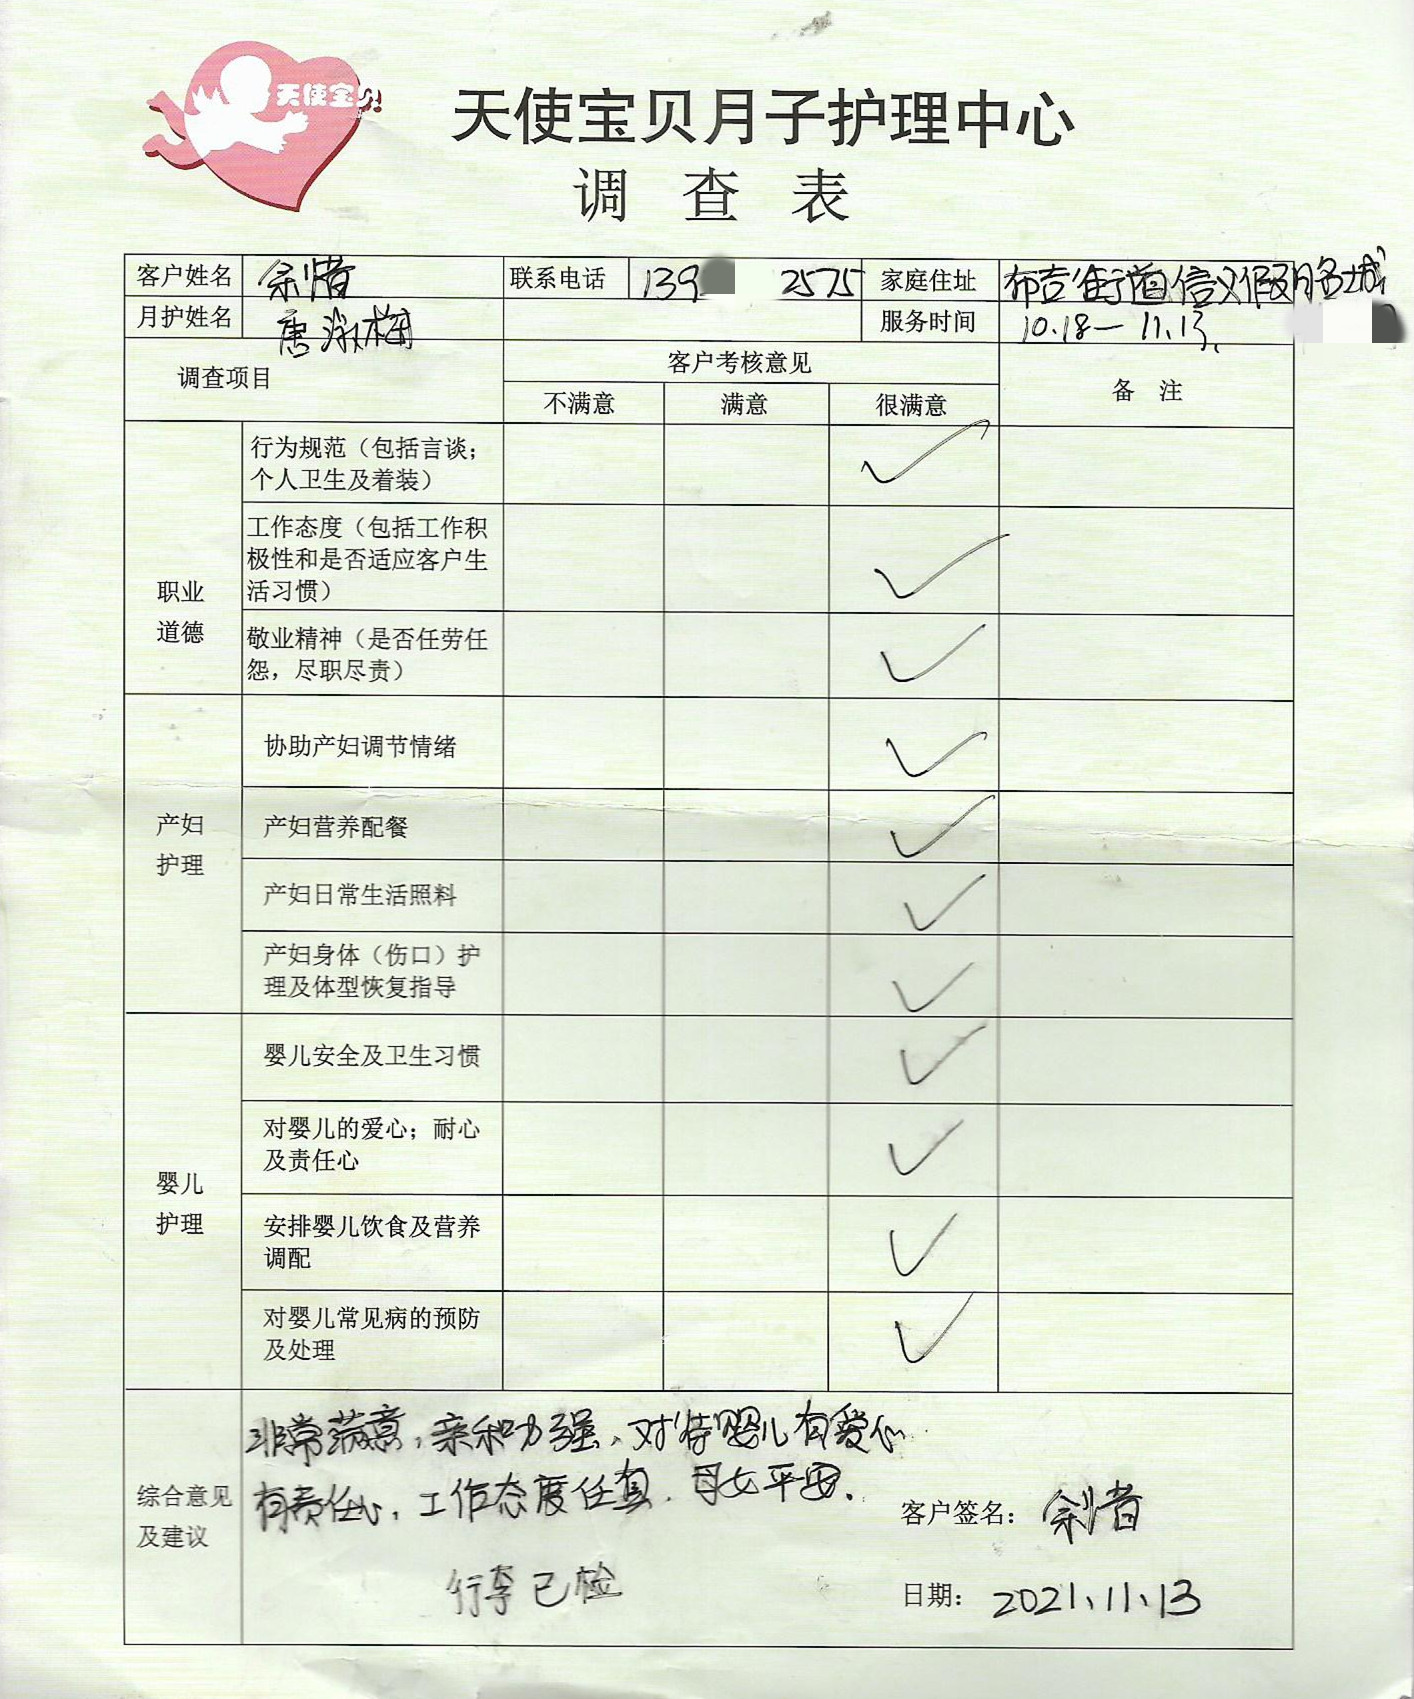 天使宝贝
天使宝贝月子护理中心
调 查 表
客户姓名 余惜 联系电话 139 2575 家庭住址 布吉街道信义假日名城
月护姓名 唐淑梅 服务时间 10.18—11.13
调查项目 客户考核意见 备 注
不满意 满意 很满意
职业
道德
行为规范（包括言谈；
个人卫生及着装） ✓
工作态度（包括工作积
极性和是否适应客户生
活习惯） ✓
敬业精神（是否任劳任
怨，尽职尽责） ✓
产妇
护理
协助产妇调节情绪 ✓
产妇营养配餐 ✓
产妇日常生活照料 ✓
产妇身体（伤口）护
理及体型恢复指导 ✓
婴儿
护理
婴儿安全及卫生习惯 ✓
对婴儿的爱心；耐心
及责任心 ✓
安排婴儿饮食及营养
调配 ✓
对婴儿常见病的预防
及处理 ✓
综合意见
及建议
非常满意，亲和力强、对待婴儿有爱心
有责任心，工作态度任真，母女平安.
行李已检
客户签名： 余惜
日期： 2021.11.13